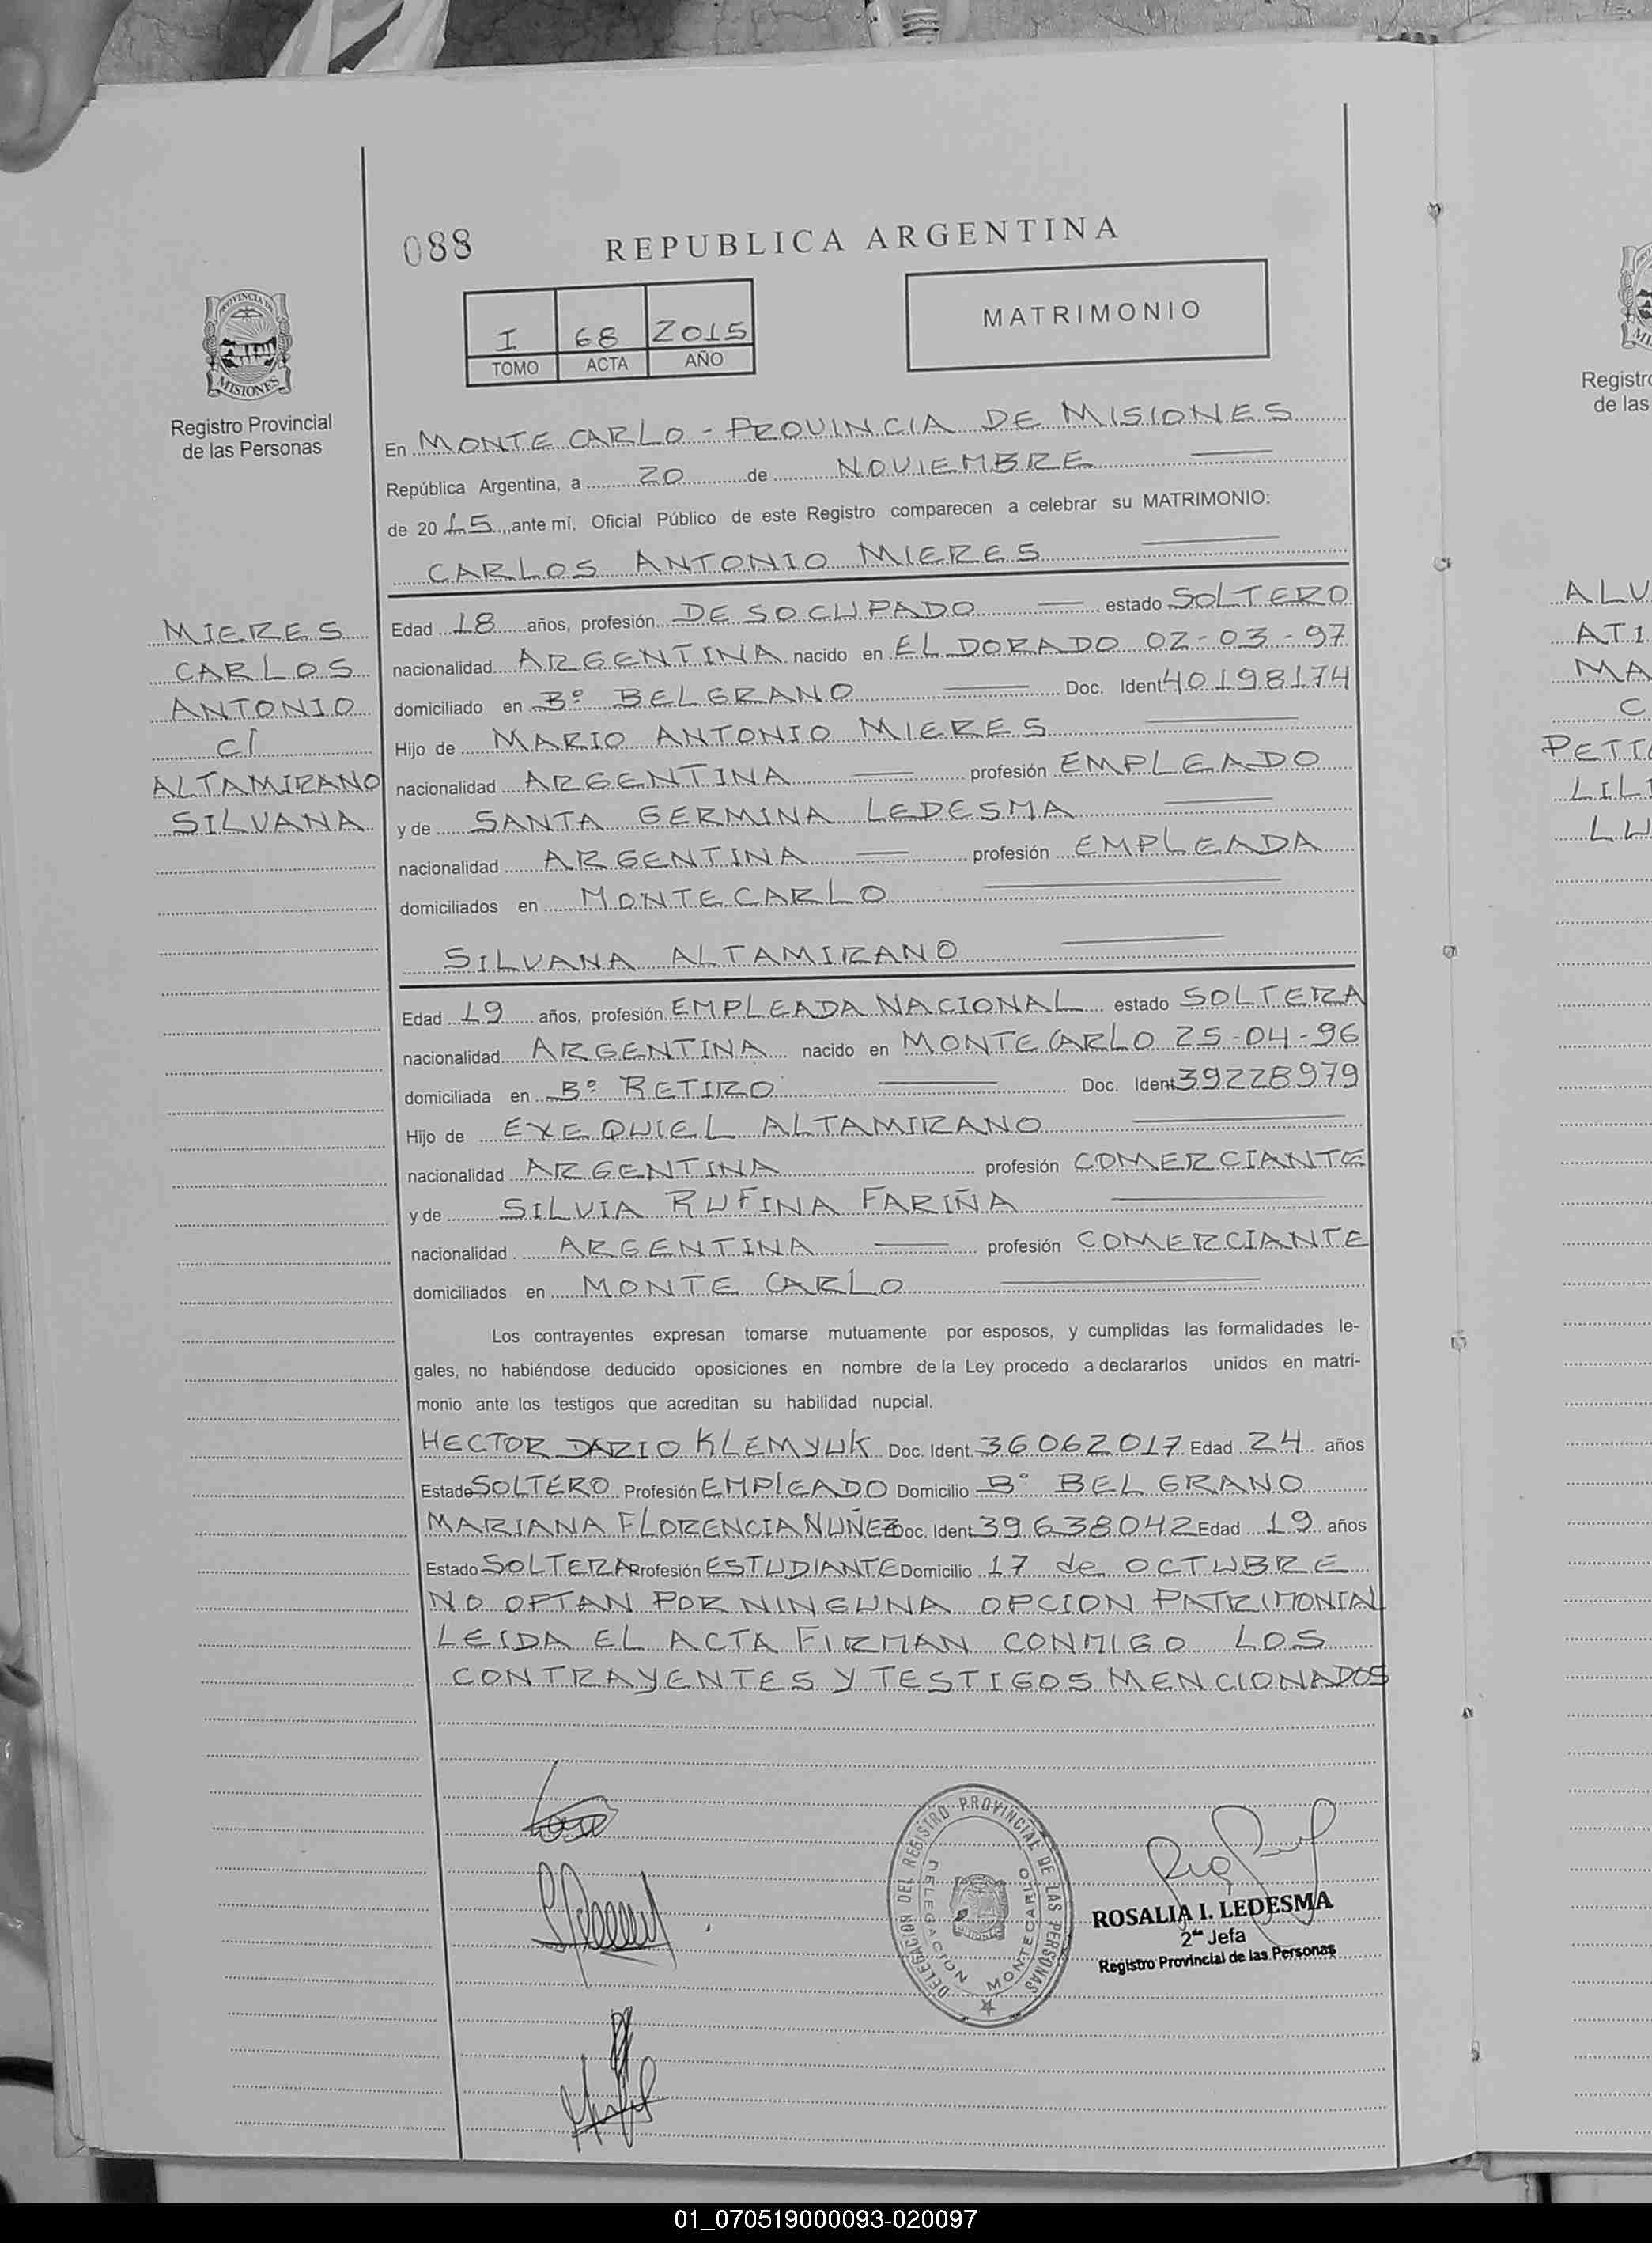 088
REPUBLICA ARGENTINA
PROVINCIA DE
MISIONES
Registro Provincial
de las Personas
I 68 2015
TOMO ACTA AÑO
MATRIMONIO
En MONTE CARLO - PROVINCIA DE MISIONES
República Argentina, a 20 de NOVIEMBRE
de 2015, ante mí, Oficial Público de este Registro comparecen a celebrar su MATRIMONIO:
CARLOS ANTONIO MIERES
MIERES
CARLOS
ANTONIO
C/
ALTAMIRANO
SILVANA
Edad 18 años, profesión DESOCUPADO estado SOLTERO
nacionalidad ARGENTINA nacido en ELDORADO 02-03-97
domiciliado en Bº BELGRANO Doc. Ident 40198174
Hijo de MARIO ANTONIO MIERES
nacionalidad ARGENTINA profesión EMPLEADO
y de SANTA GERMINA LEDESMA
nacionalidad ARGENTINA profesión EMPLEADA
domiciliados en MONTECARLO
SILVANA ALTAMIRANO
Edad 19 años, profesión EMPLEADA NACIONAL estado SOLTERA
nacionalidad ARGENTINA nacido en MONTECARLO 25-04-96
domiciliada en Bº RETIRO Doc. Ident 39228979
Hijo de EXEQUIEL ALTAMIRANO
nacionalidad ARGENTINA profesión COMERCIANTE
y de SILVIA RUFINA FARIÑA
nacionalidad ARGENTINA profesión COMERCIANTE
domiciliados en MONTE CARLO
Los contrayentes expresan tomarse mutuamente por esposos, y cumplidas las formalidades le-
gales, no habiéndose deducido oposiciones en nombre de la Ley procedo a declararlos unidos en matri-
monio ante los testigos que acreditan su habilidad nupcial.
HECTOR DARIO KLEMYUK Doc. Ident. 36062017 Edad 24 años
Estado SOLTERO Profesión EMPLEADO Domicilio Bº BELGRANO
MARIANA FLORENCIA NUÑEZ Doc. Ident. 39638042 Edad 19 años
Estado SOLTERA Profesión ESTUDIANTE Domicilio 17 de OCTUBRE
NO OPTAN POR NINGUNA OPCION PATRIMONIAL
LEIDA EL ACTA FIRMAN CONMIGO LOS
CONTRAYENTES Y TESTIGOS MENCIONADOS
DELEGACION DEL REGISTRO PROVINCIAL DE LAS PERSONAS
DELEGACION MONTECARLO
ROSALIA I. LEDESMA
2da Jefa
Registro Provincial de las Personas
Registro
de las
ALV
ATI
MA
C
PETT
LILI
LU
01_070519000093-020097